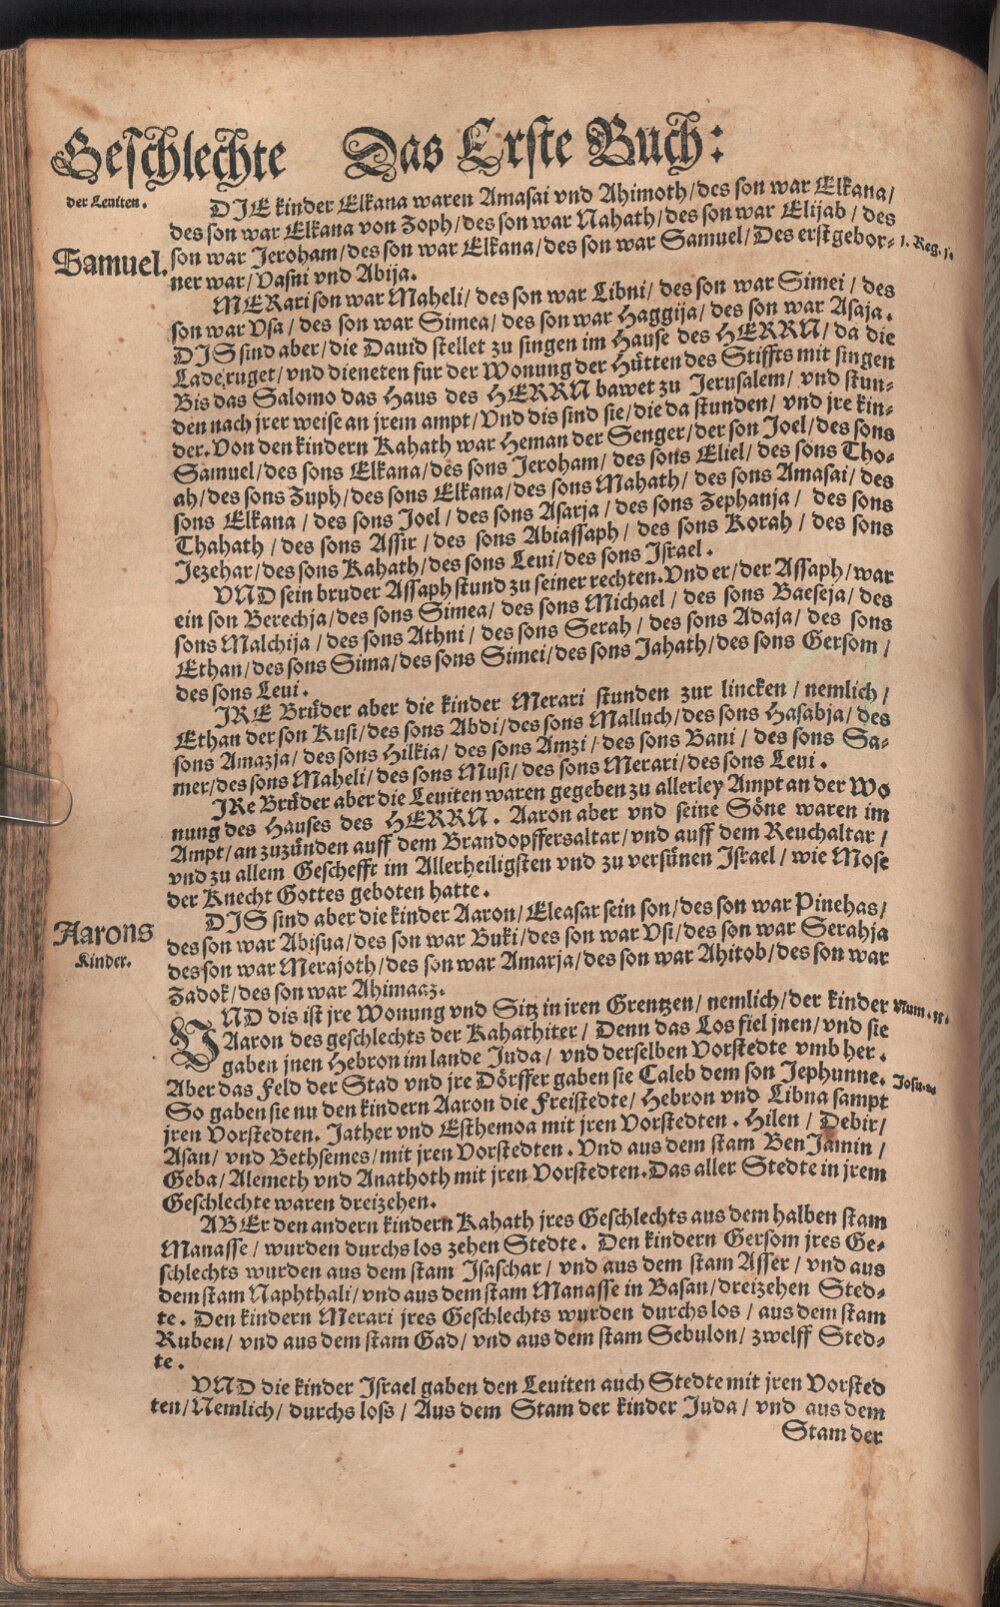 Geschlechte Das Erste Buch:
der Leuiten.
DIE kinder Elkana waren Amasai vnd Ahimoth/des son war Elkana/
des son war Elkana von Zoph/des son war Nahath/des son war Elijab/ des
Samuel. son war Jeroham/des son war Elkana/des son war Samuel/Des erstgebor= 1. Reg. j.
ner war/Vasni vnd Abija.
MERari son war Maheli/des son war Libni/des son war Simei/ des
son war Vsa/ des son war Simea/ des son war Haggija/des son war Asaja.
DIS sind aber/die Dauid stellet zu singen im Hause des HERRN/ da die
Lade ruget/vnd dieneten fur der Wonung der Hütten des Stiffts mit singen
Bis das Salomo das Haus des HERRN bawet zu Jerusalem/ vnd stun=
den nach jrer weise an jrem ampt/Vnd dis sind sie/die da stunden/ vnd jre kin=
der. Von den kindern Kahath war Heman der Senger/der son Joel/des sons
Samuel/des sons Elkana/des sons Jeroham/ des sons Eliel/ des sons Tho=
ah/des sons Zuph/des sons Elkana/des sons Mahath/ des sons Amasai/ des
sons Elkana / des sons Joel / des sons Asarja / des sons Zephanja / des sons
Thahath / des sons Assir / des sons Abiassaph/ des sons Korah / des sons
Jezehar/des sons Kahath/des sons Leui/des sons Israel.
VND sein bruder Assaph stund zu seiner rechten. Vnd er/der Assaph/war
ein son Berechja/des sons Simea/ des sons Michael / des sons Baeseja/ des
sons Malchija / des sons Athni / des sons Serah / des sons Adaja/ des sons
Ethan/des sons Sima/des sons Simei/des sons Jahath/des sons Gersom /
des sons Leui.
IRE Brüder aber die kinder Merari stunden zur lincken / nemlich /
Ethan der son Kusi/des sons Abdi/des sons Malluch/des sons Hasabja/ des
sons Amazja/ des sons Hilkia/ des sons Amzi / des sons Bani / des sons Sa=
mer/des sons Maheli/des sons Musi/des sons Merari/des sons Leui.
IRe Brüder aber die Leuiten waren gegeben zu allerley Ampt an der Wo
nung des Hauses des HERRN. Aaron aber vnd seine Söne waren im
Ampt/an zuzünden auff dem Brandopffersaltar/vnd auff dem Reuchaltar /
vnd zu allem Geschefft im Allerheiligsten vnd zu versünen Israel / wie Mose
der Knecht Gottes geboten hatte.
Aarons DIS sind aber die kinder Aaron/Eleasar sein son/des son war Pinehas/
Kinder. des son war Abisua/des son war Buki/des son war Vsi/des son war Serahja
des son war Merajoth/des son war Amarja/des son war Ahitob/des son war
Zadok/des son war Ahimaaz.
VND dis ist jre Wonung vnd Sitz in jren Grentzen/ nemlich/der kinder Num.
Aaron des geschlechts der Kahathiter/ Denn das Los fiel jnen/vnd sie
gaben jnen Hebron im lande Juda/ vnd derselben Vorstedte vmb her.
Aber das Feld der Stad vnd jre Dörffer gaben sie Caleb dem son Jephunne.
So gaben sie nu den kindern Aaron die Freistedte/ Hebron vnd Libna sampt
jren Vorstedten. Jather vnd Esthemoa mit jren Vorstedten. Hilen / Debir/
Asan/ vnd Bethsemes/mit jren Vorstedten. Vnd aus dem stam BenJamin /
Geba/ Alemeth vnd Anathoth mit jren Vorstedten. Das aller Stedte in jrem
Geschlechte waren dreizehen.
ABEr den andern kindern Kahath jres Geschlechts aus dem halben stam
Manasse / wurden durchs los zehen Stedte. Den kindern Gersom jres Ge=
schlechts wurden aus dem stam Isaschar/ vnd aus dem stam Asser / vnd aus
dem stam Naphthali/vnd aus dem stam Manasse in Basan/dreizehen Sted=
te. Den kindern Merari jres Geschlechts wurden durchs los / aus dem stam
Ruben/ vnd aus dem stam Gad/ vnd aus dem stam Sebulon/ zwelff Sted=
te.
VND die kinder Israel gaben den Leuiten auch Stedte mit jren Vorsted
ten/Nemlich/ durchs loss / Aus dem Stam der kinder Juda/ vnd aus dem
Stam der